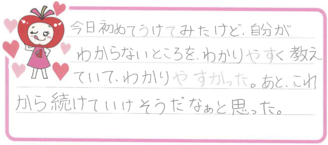 今日初めてうけてみたけど、自分が
わからないところを、わかりやすく教え
ていて、わかりやすかった。あと、これ
から続けていけそうだなぁと思った。